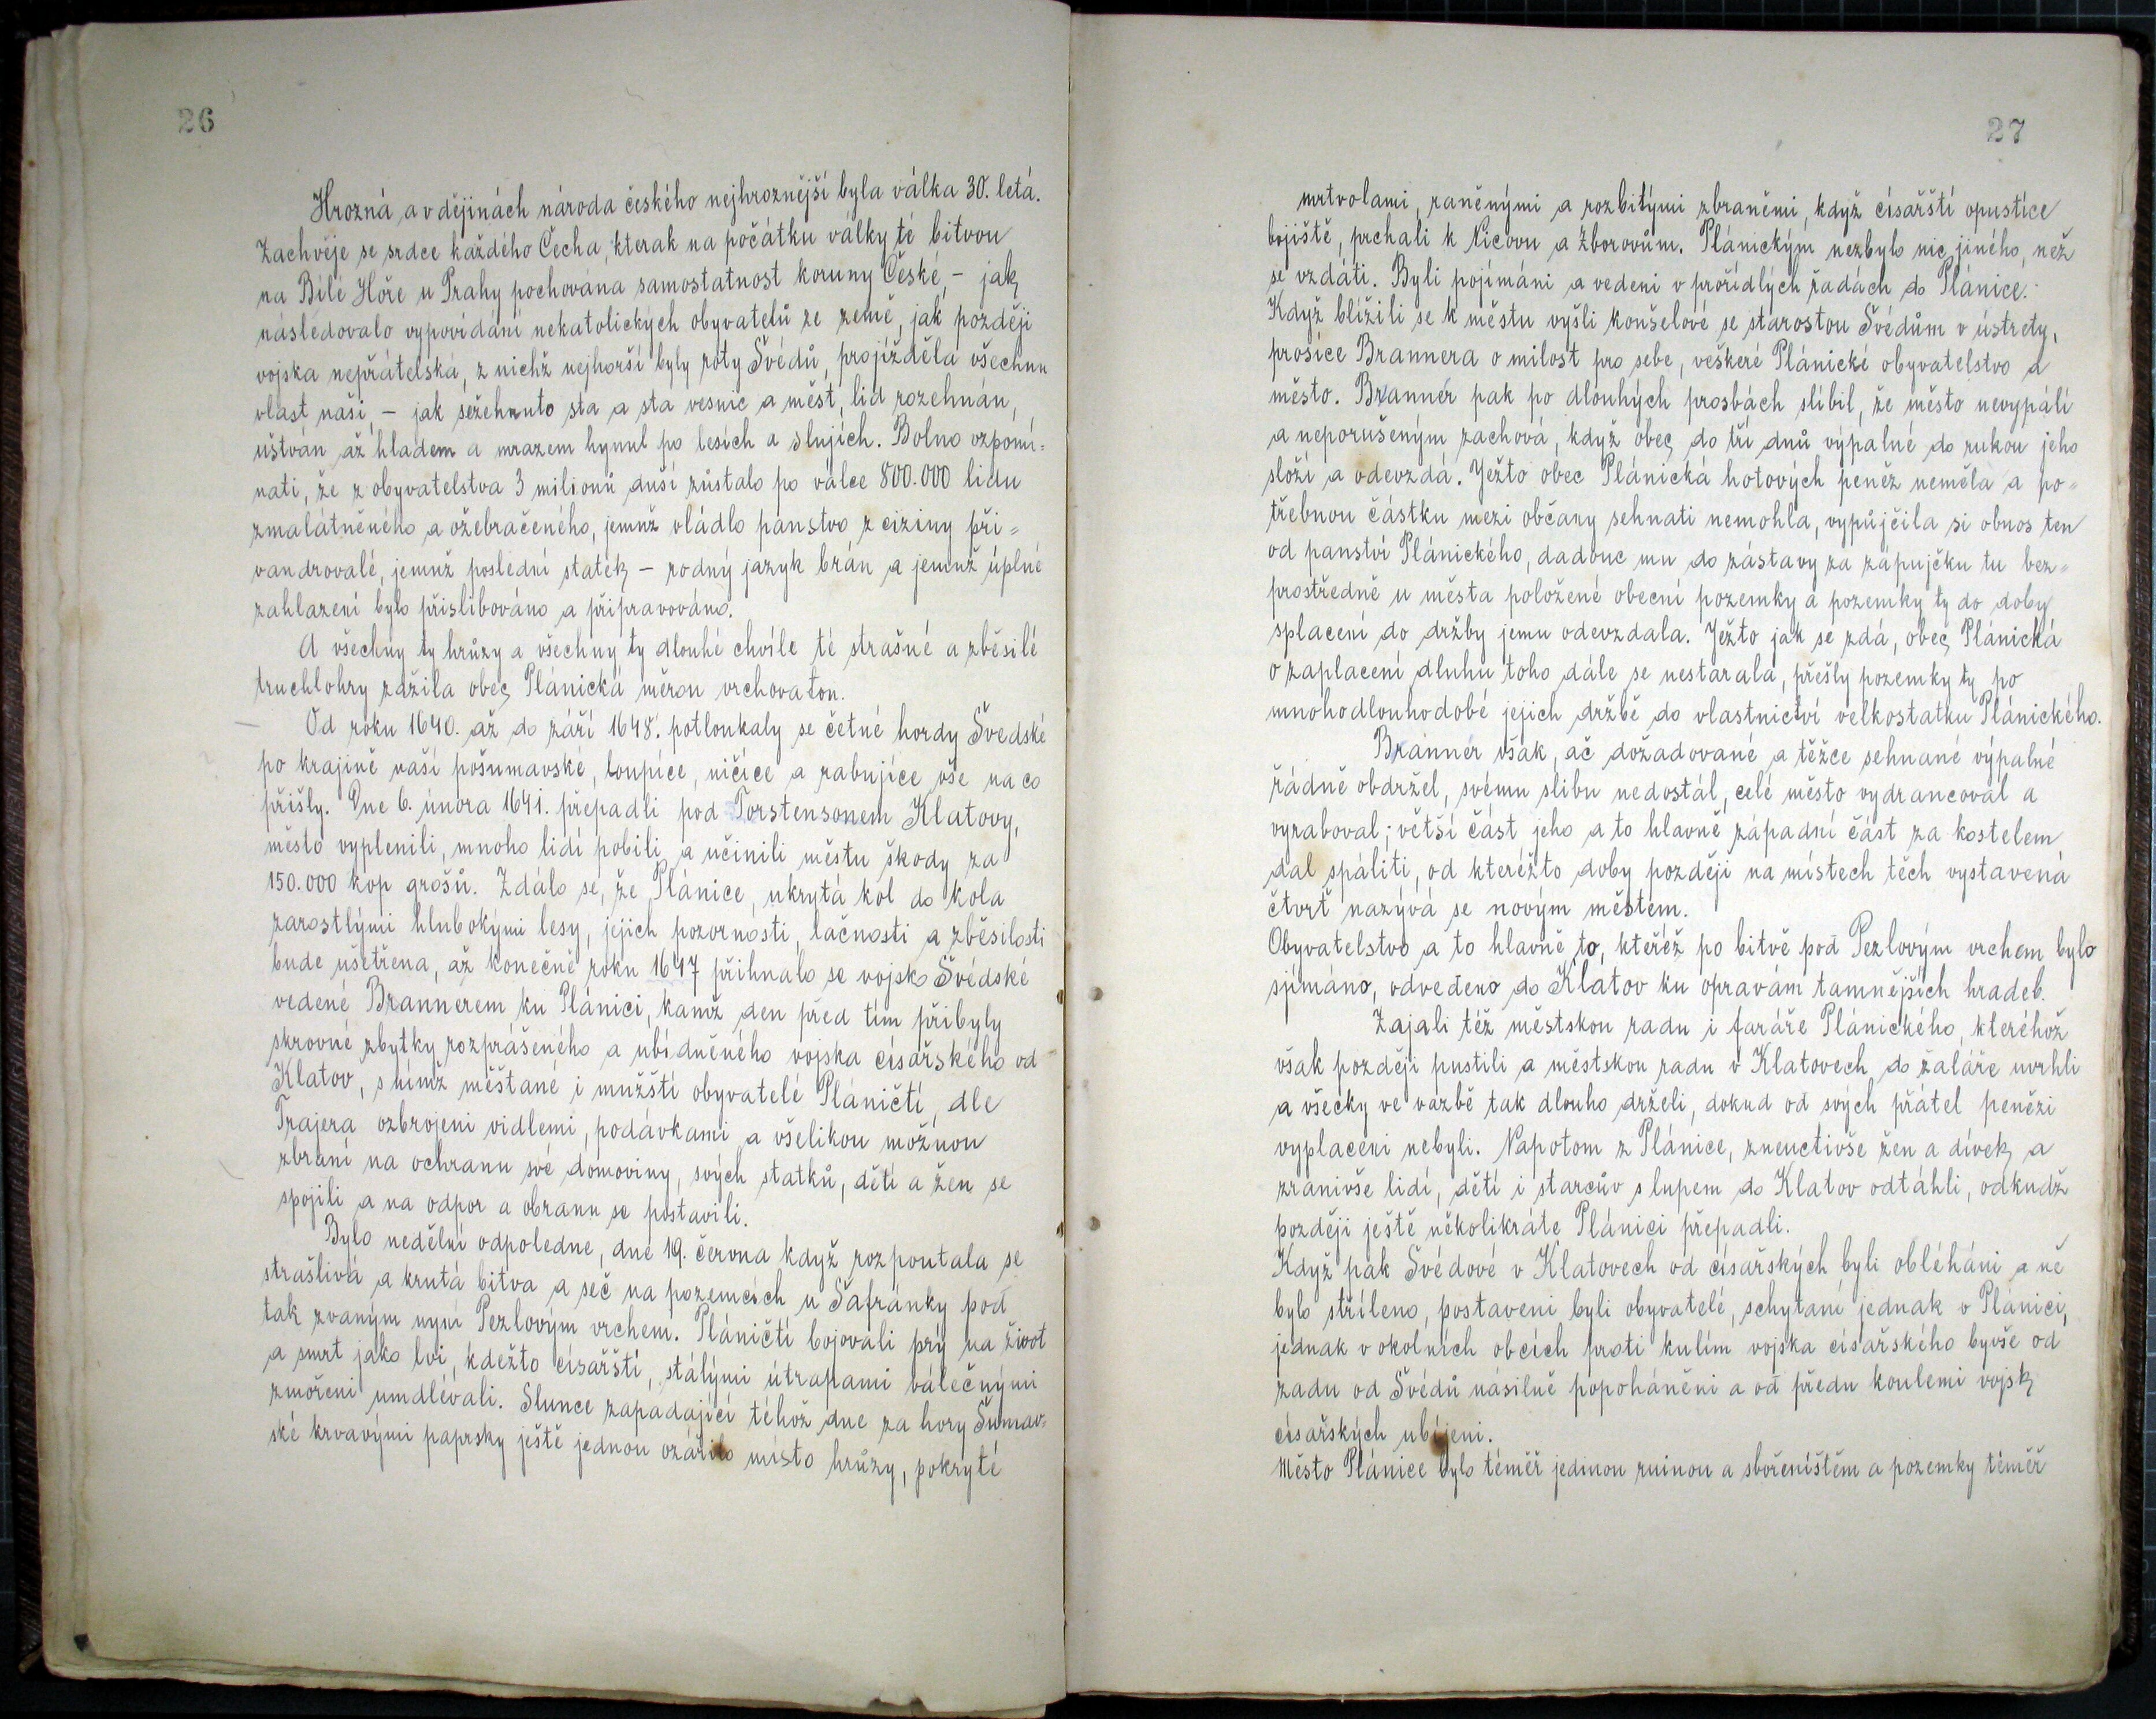 26
Hrozná, a v dějinách národa českého nejhroznější byla válka 30. letá.
Zachvěje se srdce každého Čecha, kterak na počátku války té bitvou
na Bílé Hoře u Prahy pochována samostatnost koruny České, – jak
následovalo vypovídání nekatolických obyvatelů ze země, jak později
vojska nepřátelská, z nichž nejhorší byly roty Švédů, projížděla všechnu
vlast naši, – jak sežehnuto sta a sta vesnic a měst, lid rozehnán,
uštván až hladem a mrazem hynul po lesích a slujích. Bolno vzpomí=
nati, že z obyvatelstva 3 milionů duší zůstalo po válce 800.000 lidu
zmalátněného a ožebračeného, jemuž vládlo panstvo z ciziny při=
vandrovalé, jemuž poslední statek – rodný jazyk brán a jemuž úplné
zahlazení bylo přislibováno a připravováno.
A všechny ty hrůzy a všechny ty dlouhé chvíle té strašné a zběsilé
truchlohry zažila obec Plánická měrou vrchovatou.
Od roku 1640. až do září 1648. potloukaly se četné hordy Švedské
po krajině naší pošumavské, loupíce, ničíce a rabujíce vše na co
přišly. Dne 6. února 1641. přepadli pod Torstensonem Klatovy,
město vyplenili, mnoho lidí pobili a učinili městu škody za
150.000 kop grošů. Zdálo se, že Plánice, ukrytá kol do kola
zarostlými hlubokými lesy, jejich pozornosti, lačnosti a zběsilosti
bude ušetřena, až konečně roku 1647 přihnalo se vojsko Švédské
vedené Brannerem ku Plánici, kamž den před tím přibyly
skrovné zbytky rozprášeného a ubídněného vojska císařského od
Klatov, s nímž měštané i mužští obyvatelé Pláničtí, dle
Trajera ozbrojeni vidlemi, podávkami a všelikou možnou
zbraní na ochranu své domoviny, svých statků, dětí a žen se
spojili a na odpor a obranu se postavili.
Bylo nedělní odpoledne, dne 19. června když rozpoutala se
strašlivá a krutá bitva a seč na pozemcích u Šafránky pod
tak zvaným nyní Pezlovým vrchem. Pláničtí bojovali prý na život
a smrt jako lvi, kdežto císařští, stálými útrapami válečnými
zmořeni umdlévali. Slunce zapadající téhož dne za hory Šumav=
ské krvavými paprsky ještě jednou ozářilo místo hrůzy, pokryté
27
mrtvolami, raněnými a rozbitými zbraněmi, když císařští opustíce
bojiště, prchali k Nicovu a Zborovům. Plánickým nezbylo nic jiného, než
se vzdáti. Byli pojímáni a vedeni v prořídlých řadách do Plánice.
Když blížili se k městu vyšli konšelové se starostou Švédům v ústrety,
prosíce Brannera o milost pro sebe, veškeré Plánické obyvatelstvo a
město. Branner pak po dlouhých prosbách slíbil, že město nevypálí
a neporušeným zachová, když obec do tří dnů výpalné do rukou jeho
složí a odevzdá. Ježto obec Plánická hotových peněz neměla a po=
třebnou částku mezi občany sehnati nemohla, vypůjčila si obnos ten
od panství Plánického, dadouc mu do zástavy za zápujčku tu bez=
prostředně u města položené obecní pozemky a pozemky ty do doby
splacení do držby jemu odevzdala. Ježto jak se zdá, obec Plánická
o zaplacení dluhu toho dále se nestarala, přešly pozemky ty po
mnohodlouhodobé jejich držbě do vlastnictví velkostatku Plánického.
Branner však, ač dožadované a těžce sehnané výpalné
řádně obdržel, svému slibu nedostál, celé město vydrancoval a
vyraboval; větší část jeho a to hlavně západní část za kostelem
dal spáliti, od kteréžto doby později na místech těch vystavená
čtvrť nazývá se novým městem.
Obyvatelstvo a to hlavně to, kteréž po bitvě pod Pezlovým vrchem bylo
sjímáno, odvedeno do Klatov ku opravám tamnějších hradeb.
Zajali též městskou radu i faráře Plánického, kteréhož
však později pustili a městskou radu v Klatovech do žaláře uvrhli
a všecky ve vazbě tak dlouho drželi, dokud od svých přátel penězi
vyplaceni nebyli. Napotom z Plánice, zneuctivše žen a dívek a
zranivše lidí, dětí i starcův s lupem do Klatov odtáhli, odkudž
později ještě několikráte Plánici přepadli.
Když pak Švédové v Klatovech od císařských byli obléháni a ně
bylo stříleno, postaveni byli obyvatelé, schytaní jednak v Plánici,
jednak v okolních obcích proti kulím vojska císařského byvše od
zadu od Švédů násilně popoháněni a od předu koulemi vojsk
císařských ubíjeni.
Město Plánice bylo téměř jedinou ruinou a sbořeništěm a pozemky téměř